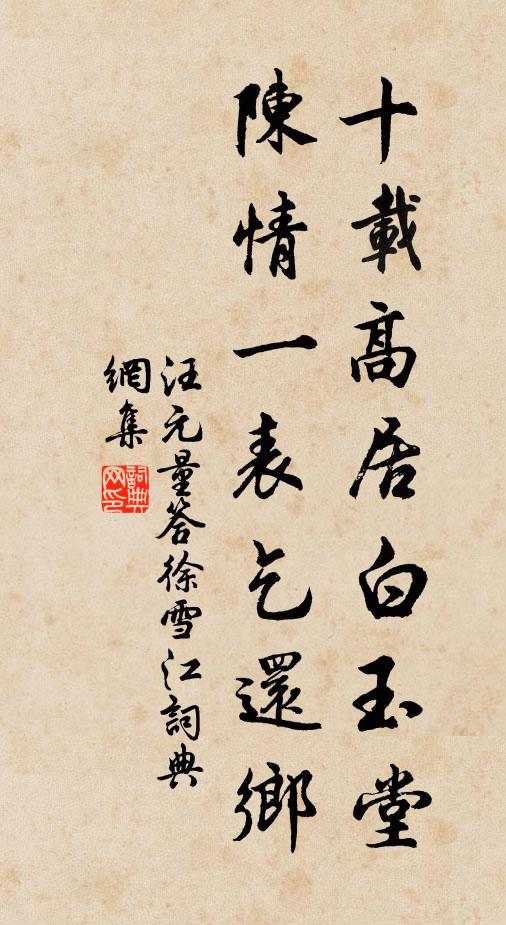 十載高居白玉堂
陳情一表乞還鄉
汪元量答徐雪江詞典
網集
詞典
网印